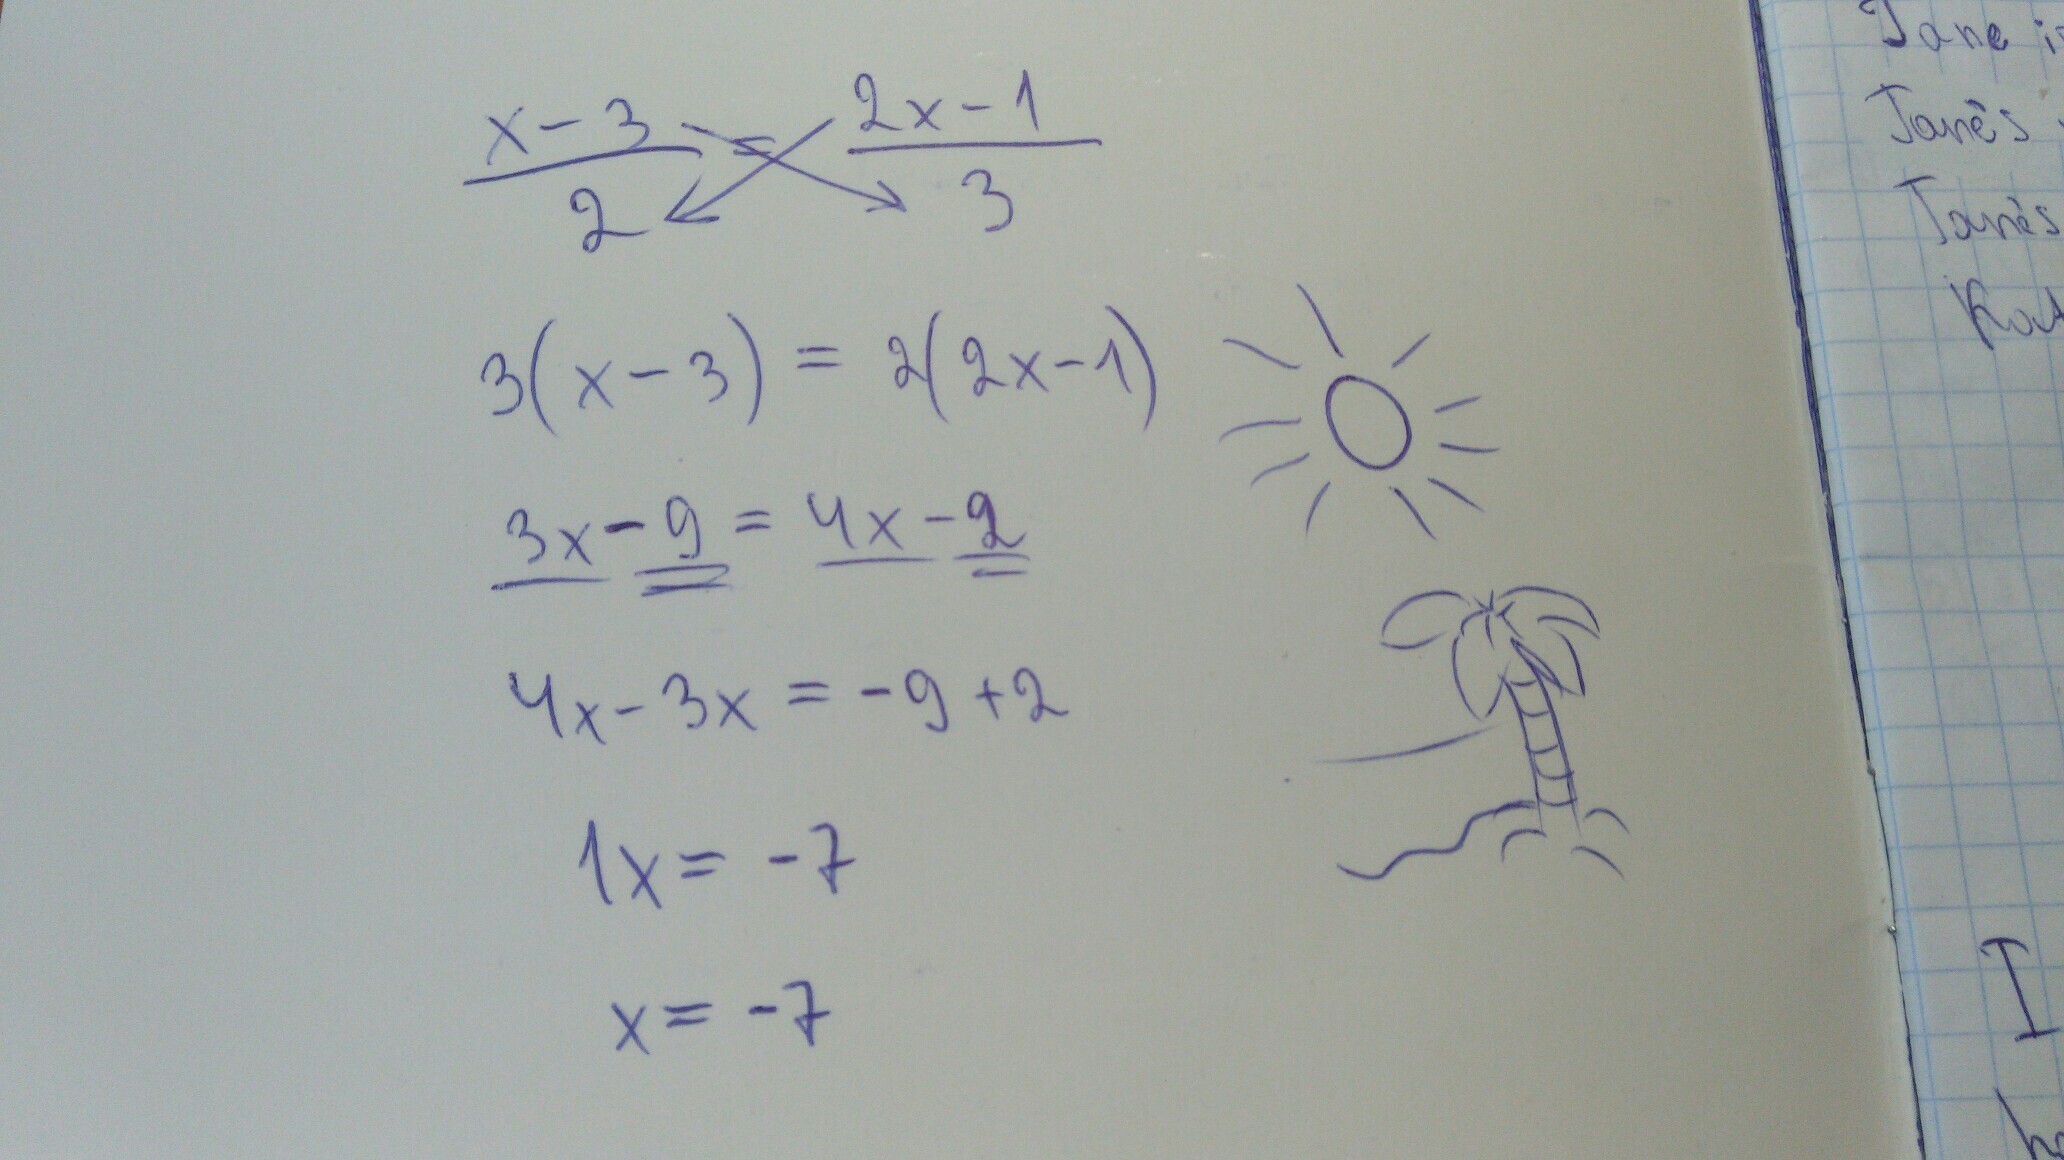 x-3/2 = 2x-1/3
3(x-3) = 2(2x-1)
3x-9 = 4x-2
4x-3x = -9+2
1x = -7
x = -7
Jane
Jane's
Jane's
I